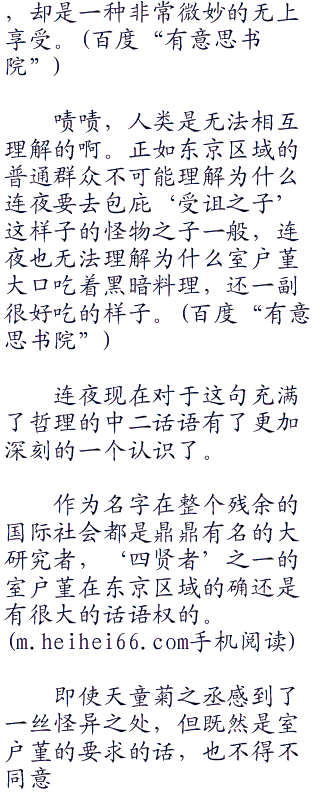 ，却是一种非常微妙的无上
享受。(百度“有意思书
院”)
啧啧，人类是无法相互
理解的啊。正如东京区域的
普通群众不可能理解为什么
连夜要去包庇‘受诅之子’
这样子的怪物之子一般，连
夜也无法理解为什么室户堇
大口吃着黑暗料理，还一副
很好吃的样子。(百度“有意
思书院”)
连夜现在对于这句充满
了哲理的中二话语有了更加
深刻的一个认识了。
作为名字在整个残余的
国际社会都是鼎鼎有名的大
研究者，‘四贤者’之一的
室户堇在东京区域的确还是
有很大的话语权的。
(m.heihei66.com手机阅读)
即使天童菊之丞感到了
一丝怪异之处，但既然是室
户堇的要求的话，也不得不
同意